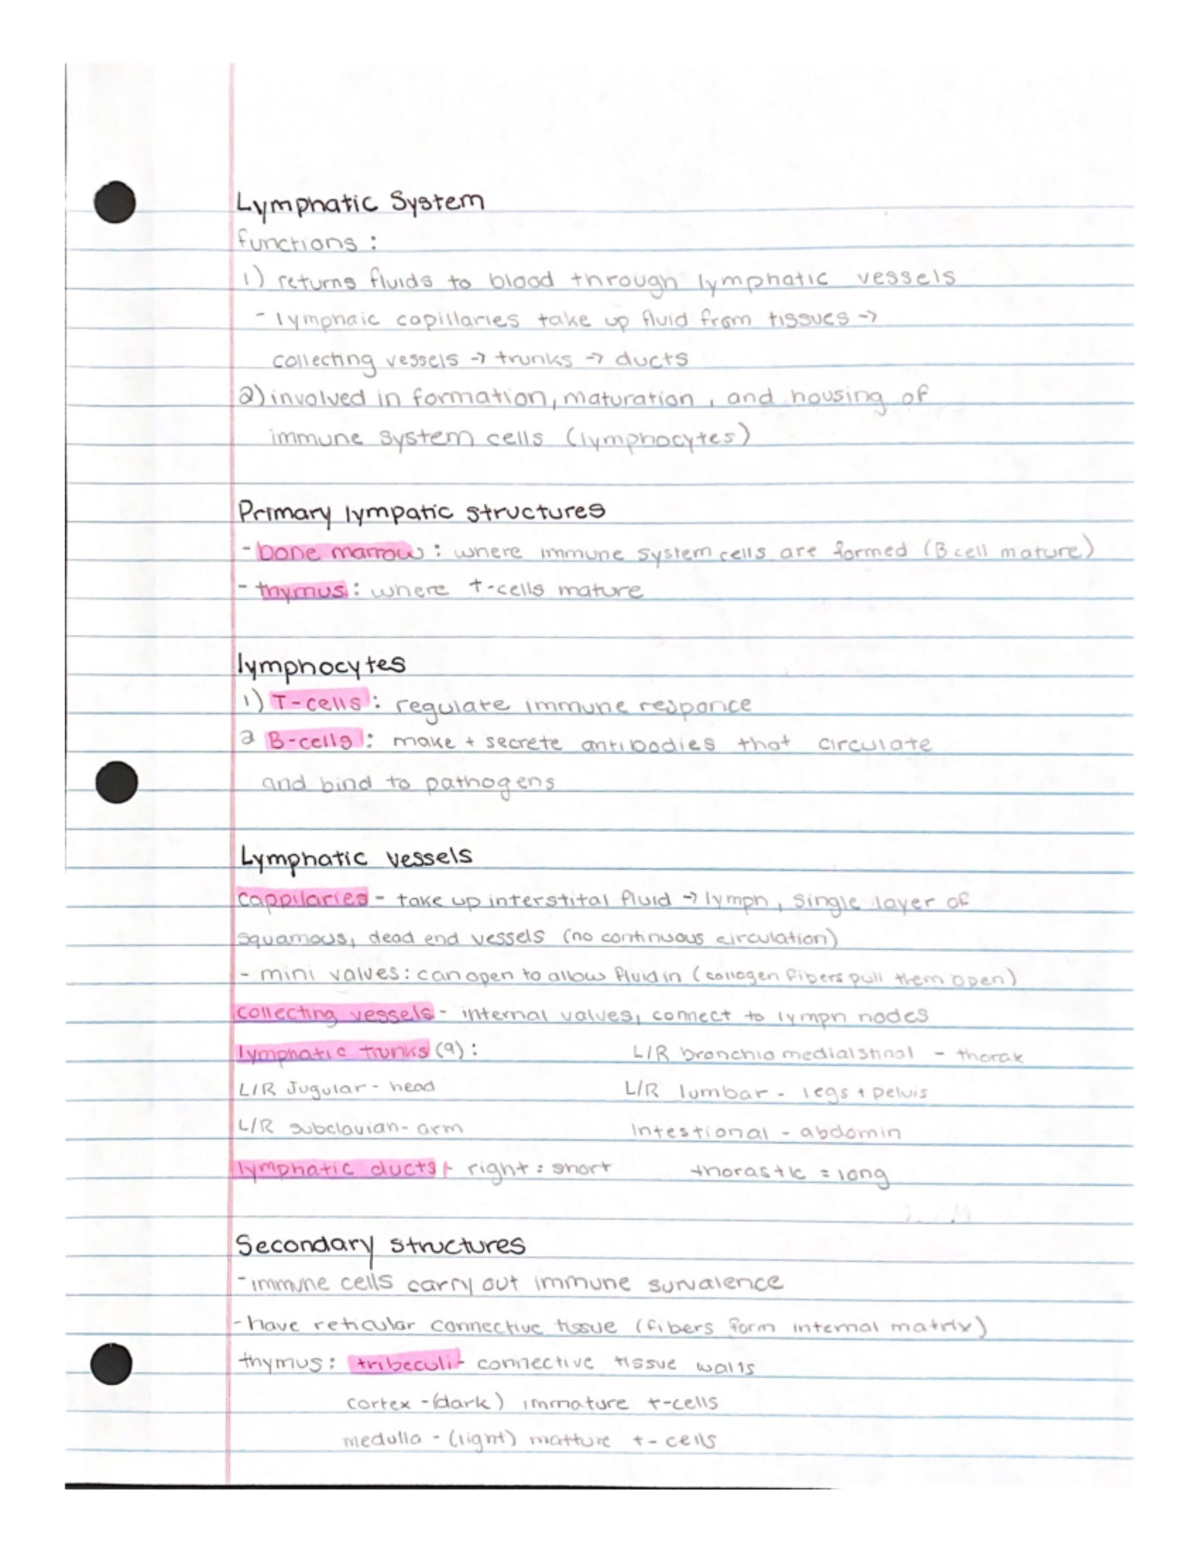 Lymphatic System
functions :
1) returns fluids to blood through lymphatic vessels
- lymphaic capillaries take up fluid from tissues →
collecting vessels → trunks → ducts
2) involved in formation, maturation, and housing of
immune system cells (lymphocytes)
Primary lympatic structures
- bone marrow : where immune system cells are formed (B cell mature)
- thymus : where t-cells mature
lymphocytes
1) T-cells : regulate immune responce
2 B-cells : make + secrete antibodies that circulate
and bind to pathogens
Lymphatic vessels
cappilaries - take up interstital fluid → lymph, single layer of
squamous, dead end vessels (no continuous circulation)
- mini valves : can open to allow fluid in (collogen fibers pull them open)
collecting vessels - internal valves, connect to lymph nodes
lymphatic trunks (9) : L/R bronchiomedialstinal - thorax
L/R Jugular - head L/R lumbar - legs + pelvis
L/R subclavian - arm Intestional - abdomin
lymphatic ducts - right : short thorastic = long
Secondary structures
- immune cells carry out immune survalence
- have reticular connective tissue (fibers form internal matrix)
thymus : tribeculi - connective tissue walls
cortex - (dark) immature t-cells
medulla - (light) matture t-cells